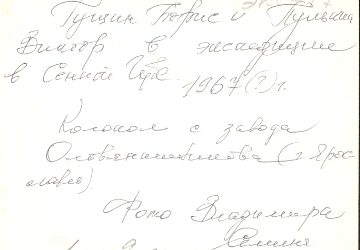 Гущин Борис и Пулькин
Виктор в экспедиции
в Сенной Губе.
1967(?) г.
Колокол с завода
Оловянишникова (г. Ярос
лавль)
Фото Владимира